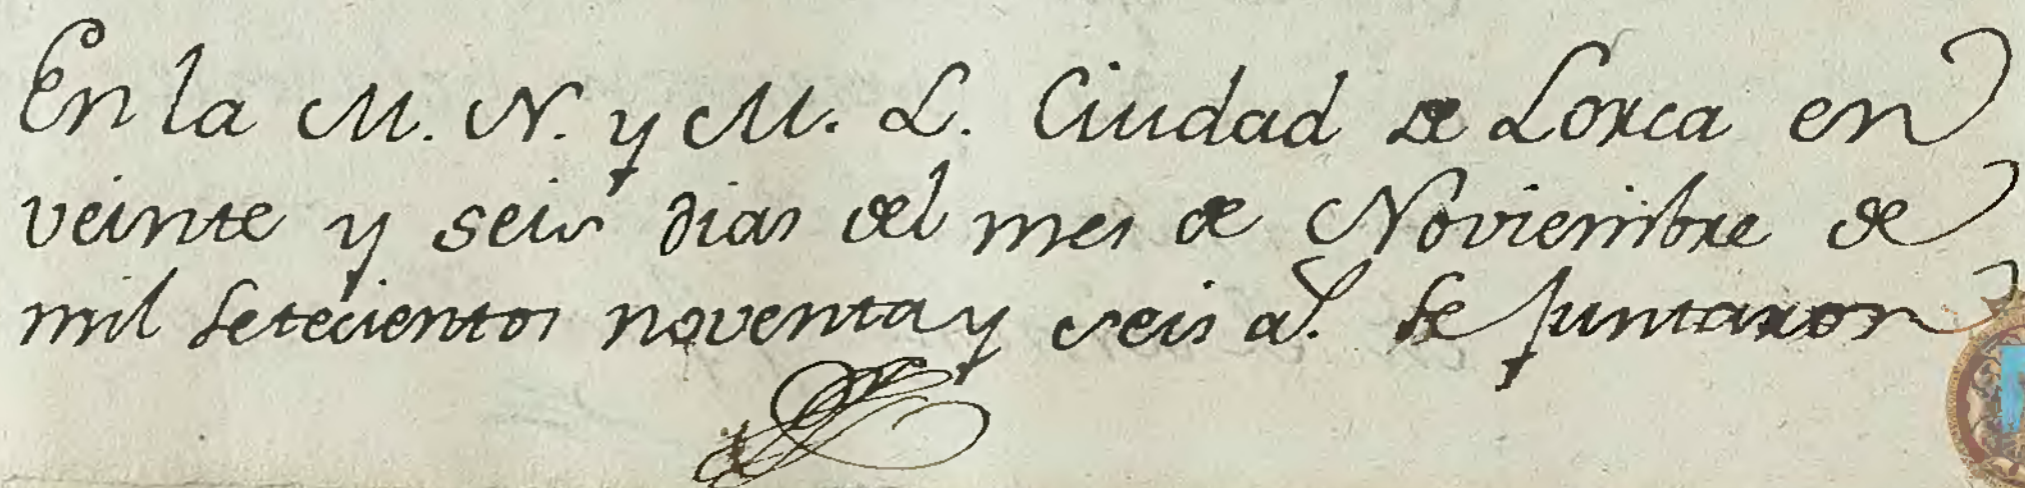 En la M. N. y M. L. Ciudad de Lorca en
veinte y seis dias del mes de Noviembre de
mil setecientos noventa y seis a.s se juntaron